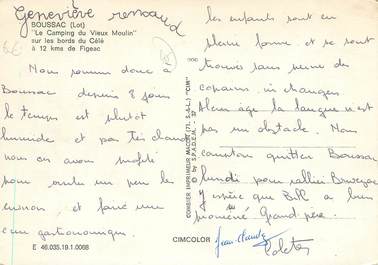 Geneviève renaud
BOUSSAC (Lot)
"Le Camping du Vieux Moulin"
sur les bords du Célé
à 12 kms de Figeac
Nous sommes donc à
Boussac depuis 8 jours
le temps est plutôt
humide et pas très chaud
nous en avons profité
pour visiter un peu les
environ et faire une
cure gastronomique
E 46.035.19.1.0068
COMBIER IMPRIMEUR MACON (71. S.-&-L.) "CIM"
by S.P.A.D.E.M. 57
CIMCOLOR
les enfants sont en
pleine forme et se sont
trouvés sans peine des
copains
plein âge la langue n'est
pas un obstacle. Nous
comptons quitter Boussac
lundi pour rallier
J'espère que Bill a bien
promené Grand-père.
Jean-Claude
Colette